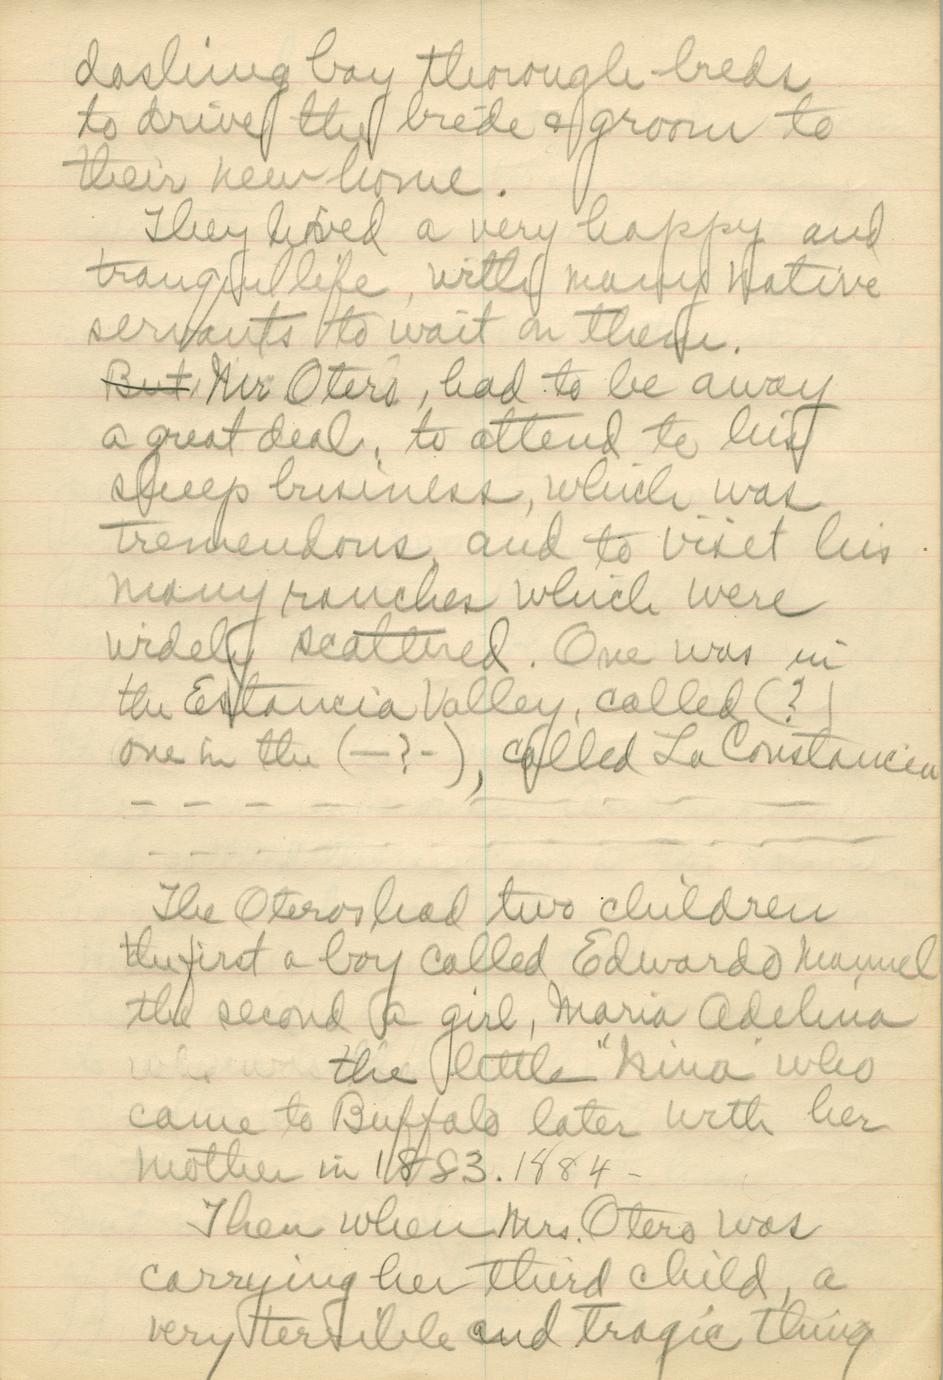 dashing bay thorough-breds
to drive the bride & groom to
their new home.
They lived a very happy and
tranquil life, with many native
servants to wait on them.
But Mr Otero, had to be away
a great deal, to attend to his
sheep business, which was
tremendous, and to visit his
many ranches which were
widely scattered. One was in
the Estancia Valley, called (?)
one in the (—?-), called La Constancia
— — — — — — — — — —
— — — — — — — — — —
The Oteros had two children
the first a boy called Edwardo Manuel
the second a girl, Maria Adelina
the little "Nina" who
came to Buffalo later with her
mother in 1883. 1884 –
Then when Mrs. Otero was
carrying her third child, a
very terrible and tragic thing